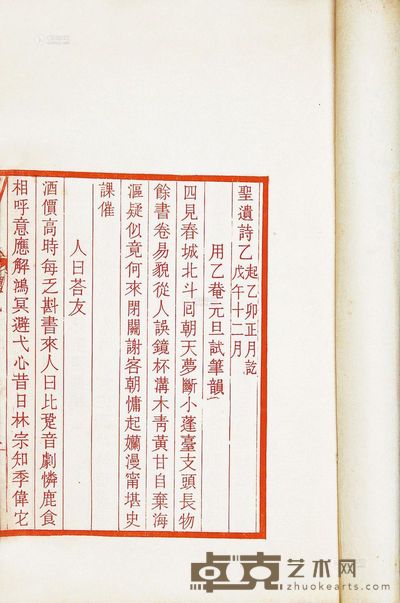 聖遺詩乙 起乙卯正月訖
戊午十二月
用乙菴元旦試筆韻
四見春城北斗囘朝天夢斷小蓬臺支頭長物
餘書卷易貌從人誤鏡杯溝木青黃甘自棄海
漚疑似竟何來閉關謝客朝慵起嬾漫甯堪史
課催
人日荅友
酒價高時每乏斟書來人日比跫音劇憐鹿食
相呼意應解鴻冥避弋心昔日林宗知季偉它
卓克艺术网
zhuokearts.com